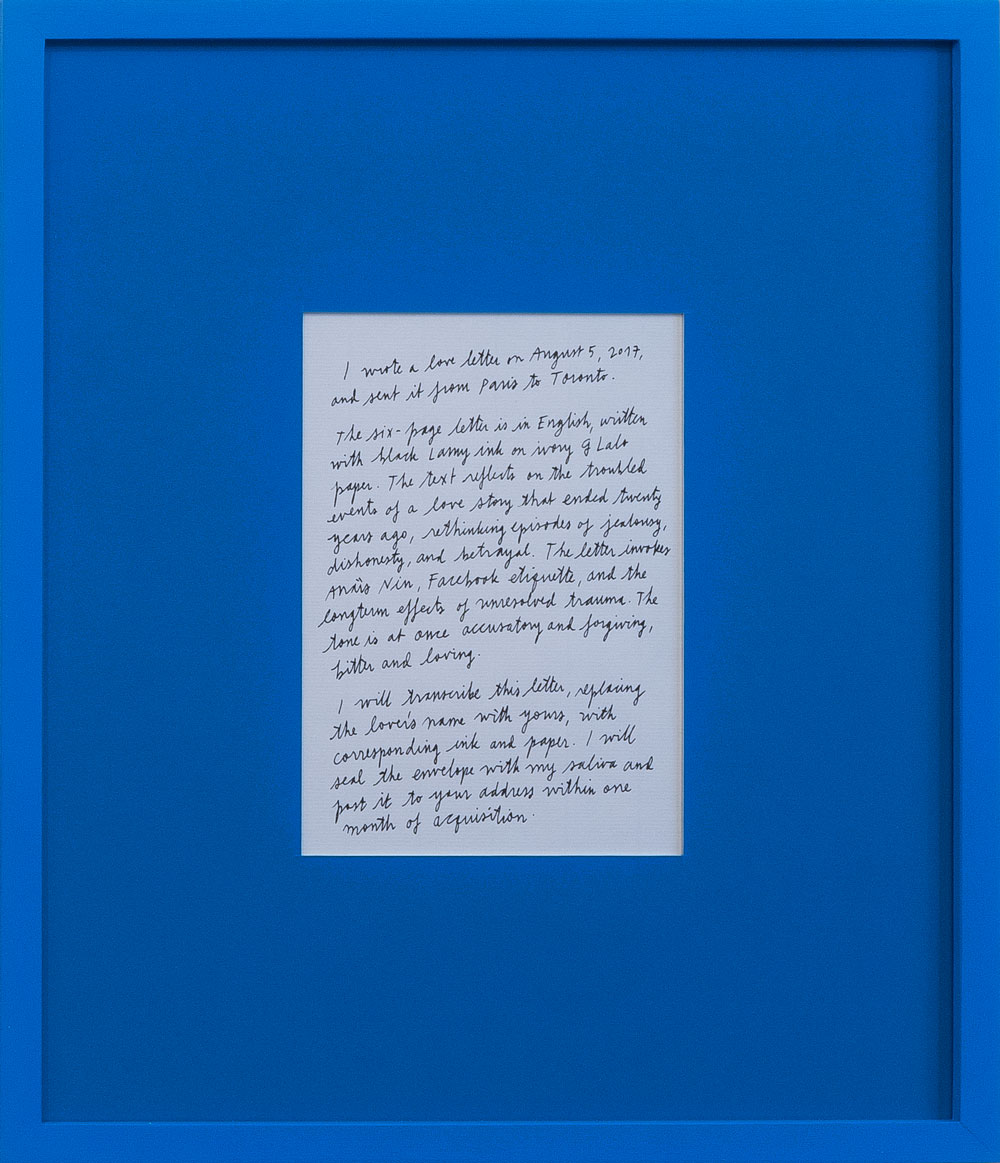 I wrote a love letter on August 5, 2017,
and sent it from Paris to Toronto.
The six-page letter is in English, written
with black Lamy ink on ivory G Lalo
paper. The text reflects on the troubled
events of a love story that ended twenty
years ago, rethinking episodes of jealousy,
dishonesty, and betrayal. The letter invokes
Anaïs Nin, Facebook etiquette, and the
longterm effects of unresolved trauma. The
tone is at once accusatory and forgiving,
bitter and loving.
I will transcribe this letter, replacing
the lover's name with yours, with
corresponding ink and paper. I will
seal the envelope with my saliva and
post it to your address within one
month of acquisition.